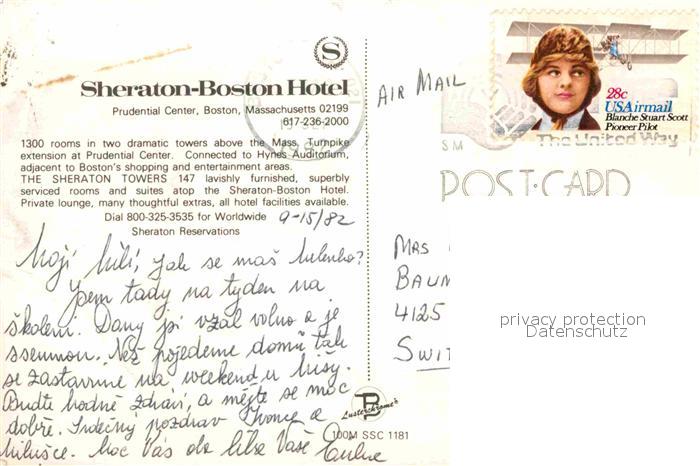 Sheraton-Boston Hotel
Prudential Center, Boston, Massachusetts 02199
617-236-2000
1300 rooms in two dramatic towers above the Mass. Turnpike
extension at Prudential Center. Connected to Hynes Auditorium,
adjacent to Boston's shopping and entertainment areas.
THE SHERATON TOWERS 147 lavishly furnished, superbly
serviced rooms and suites atop the Sheraton-Boston Hotel.
Private lounge, many thoughtful extras, all hotel facilities available.
Dial 800-325-3535 for Worldwide
Sheraton Reservations
9-15/82
Moji milí, jak se maš
jsem tady na tyden na
školení. Dany si vzal volno a je
semnou. Než pojedeme domů tak
se zastavime na weekend u
Buďte hodně zdraví, a mějte se moc
dobře. Srdečný pozdrav Ivonce a
Milušce. Moc Vás
AIR MAIL
28c
USAirmail
Blanche Stuart Scott
Pioneer Pilot
The United Way
SM
POST-CARD
MRS
BAUM
4125
SWIT
privacy protection
Datenschutz
Lusterchrome's
100M SSC 1181